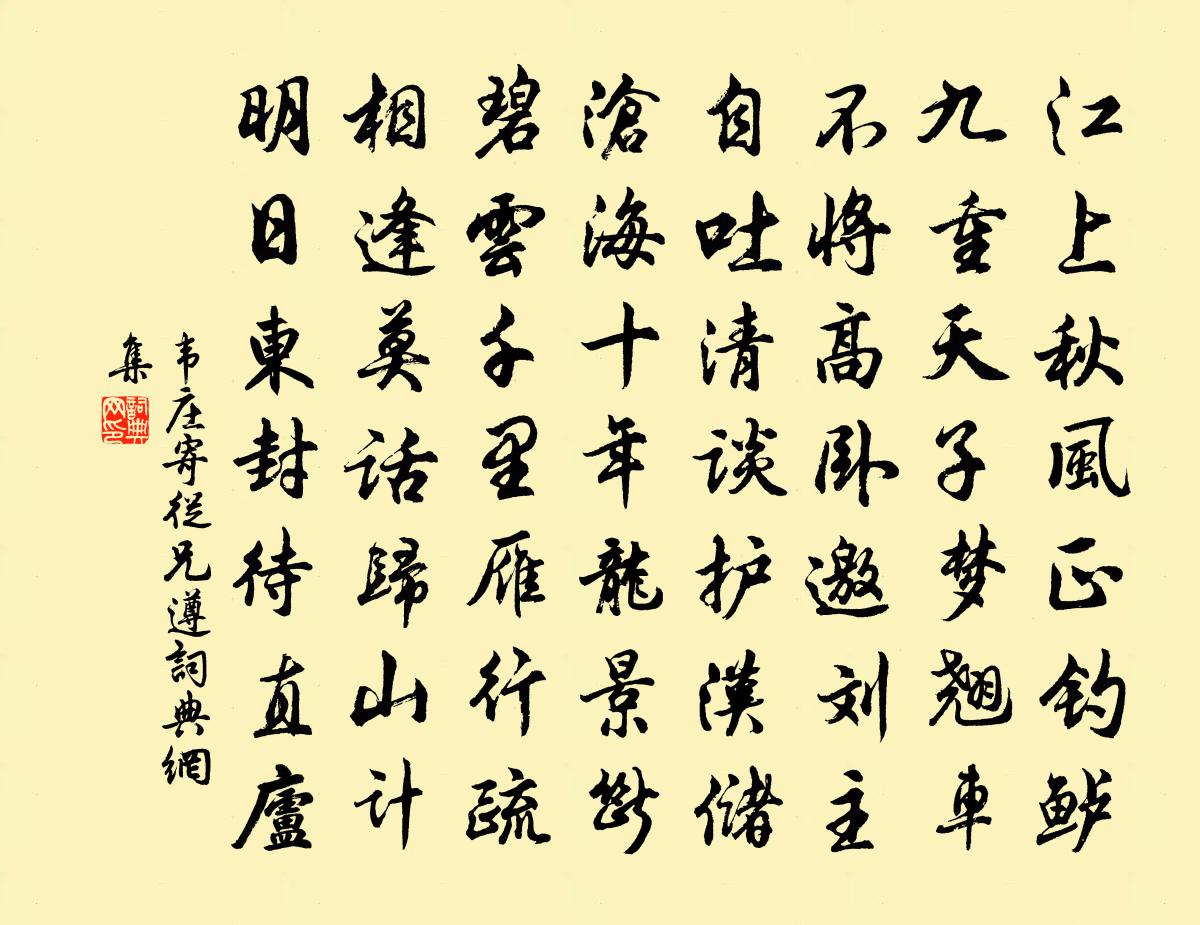 江上秋風正钓鲈
九重天子梦翘車
不将高卧邀刘主
自吐清谈护漢儲
滄海十年龍景斷
碧雲千里雁行疏
相逢莫话歸山计
明日東封待直廬
韦庄寄從兄遵詞典網
集
詞典网印